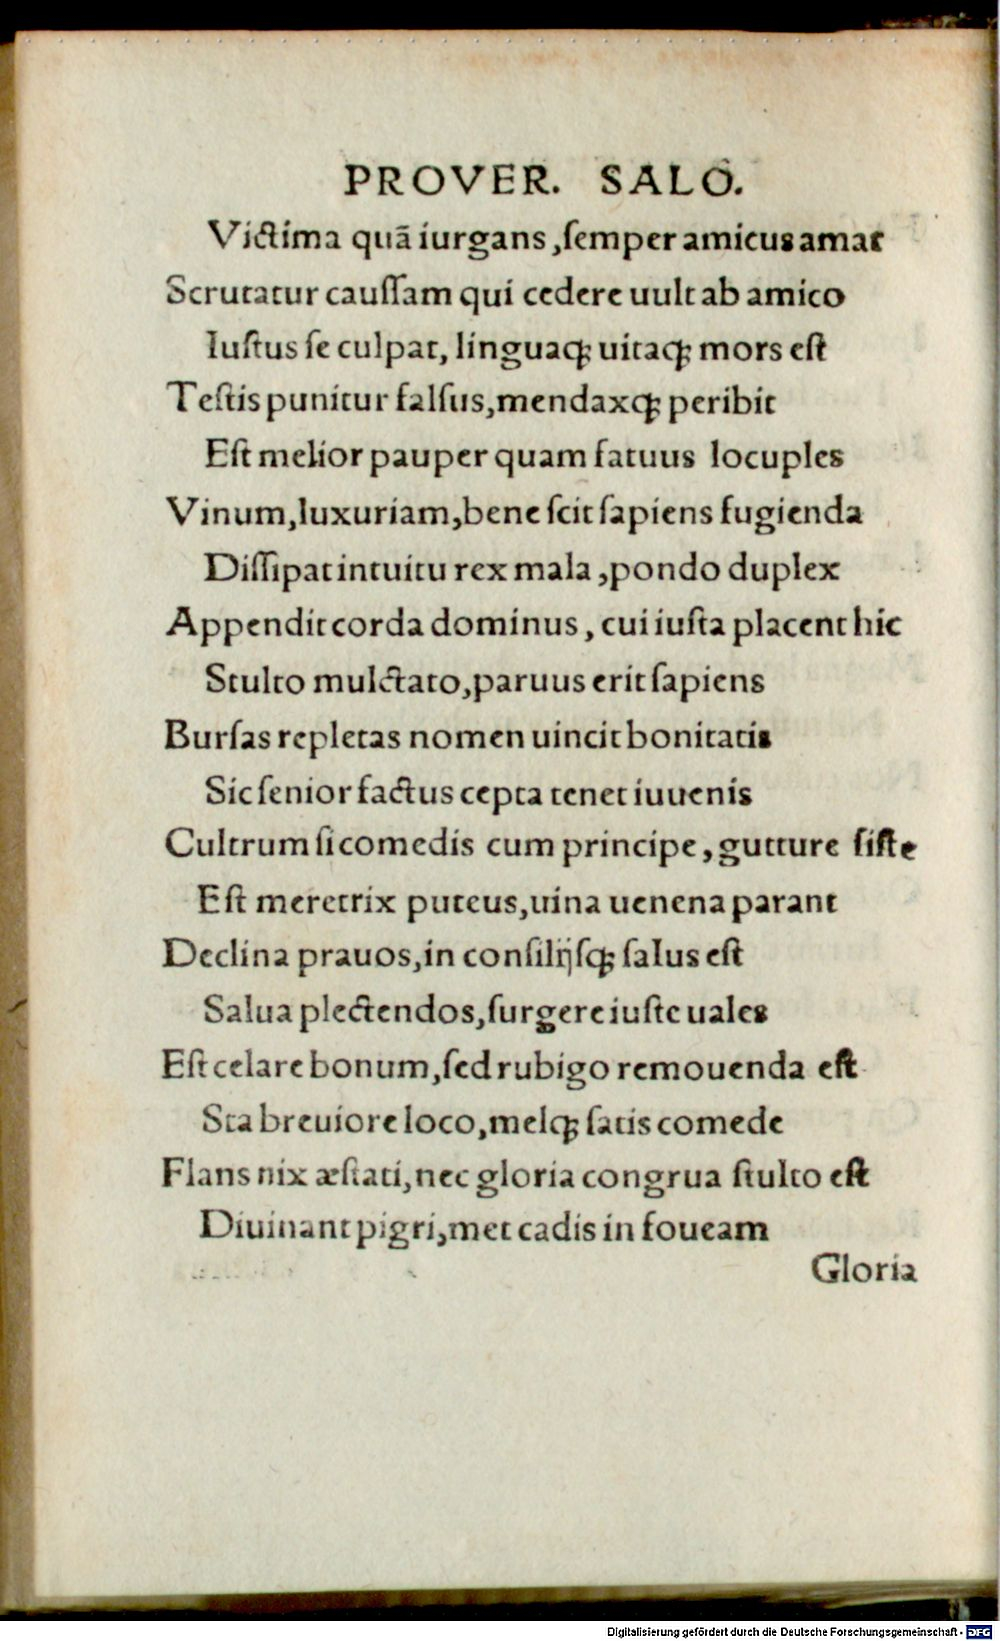 PROVER. SALO.
Victima quā iurgans, ſemper amicus amat
Scrutatur cauſſam qui cedere uult ab amico
Iuſtus ſe culpat, linguaqꝫ uitaqꝫ mors eſt
Teſtis punitur falſus, mendaxqꝫ peribit
Eſt melior pauper quam fatuus locuples
Vinum, luxuriam, bene ſcit ſapiens fugienda
Diſſipat intuitu rex mala, pondo duplex
Appendit corda dominus, cui iuſta placent hic
Stulto mulctato, paruus erit ſapiens
Burſas repletas nomen uincit bonitatis
Sic ſenior factus cepta tenet iuuenis
Cultrum ſi comedis cum principe, gutture ſiſte
Eſt meretrix puteus, uina uenena parant
Declina prauos, in conſilijſqꝫ ſalus eſt
Salua plectendos, ſurgere iuſte uales
Eſt celare bonum, ſed rubigo remouenda eſt
Sta breuiore loco, melqꝫ ſatis comede
Flans nix æſtati, nec gloria congrua ſtulto eſt
Diuinant pigri, met cadis in foueam
Gloria
Digitalisierung gefördert durch die Deutsche Forschungsgemeinschaft - DFG